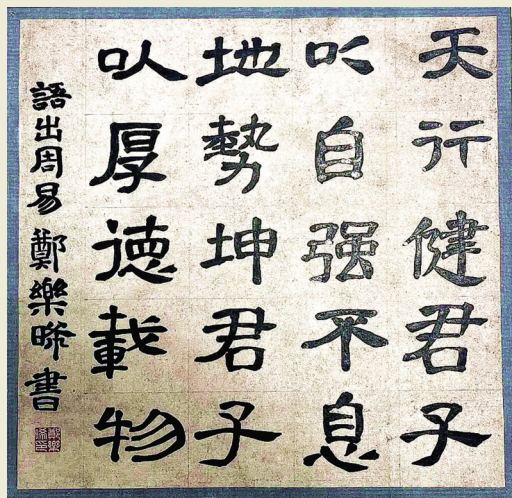 天行健君子
以自强不息
地勢坤君子
以厚德載物
語出周易 鄭樂晞書